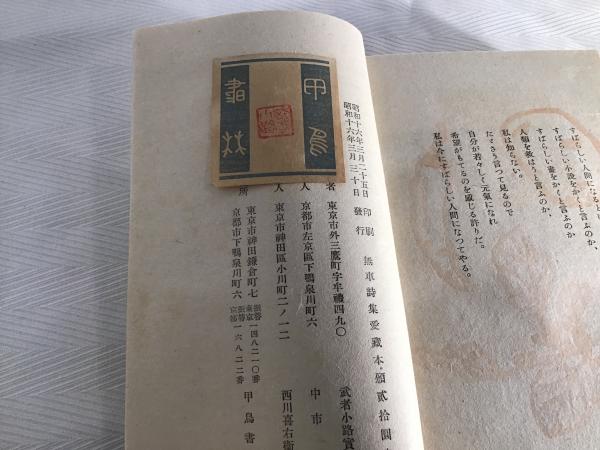 すばらしい人間になるとい
すばらしい小説をかくと言ふのか、
すばらしい畫をかくと言ふのか、
人類を救はうと言ふのか、
私は知らない。
たださう言つて見るので
自分が若々しく元氣になれ
希望がもてるのを感じる許りだ。
私は今にすばらしい人間になつてやる。
甲鳥
書林
昭和十六年三月二十五日 印刷
昭和十六年三月三十日 發行
無車詩集愛藏本・頒貳拾圓
者 東京市外三鷹町字牟禮四九〇 武者小路實
人 京都市左京區下鴨泉川町六 中市
人 東京市神田區小川町二ノ一二 西川喜右衛
所 東京市神田鎌倉町七 振替東京一四八二一〇番
京都市下鴨泉川町六 振替京都一六八二二番
甲鳥書